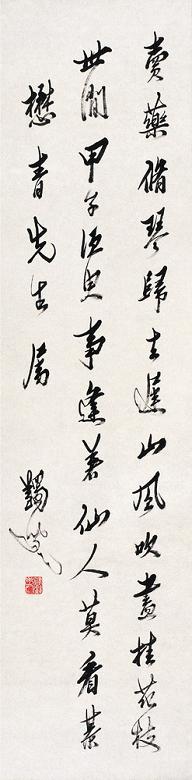 賣藥脩琴歸去遲山風吹盡桂花枝
世間甲子須臾事逢著仙人莫看棊
懋青先生屬